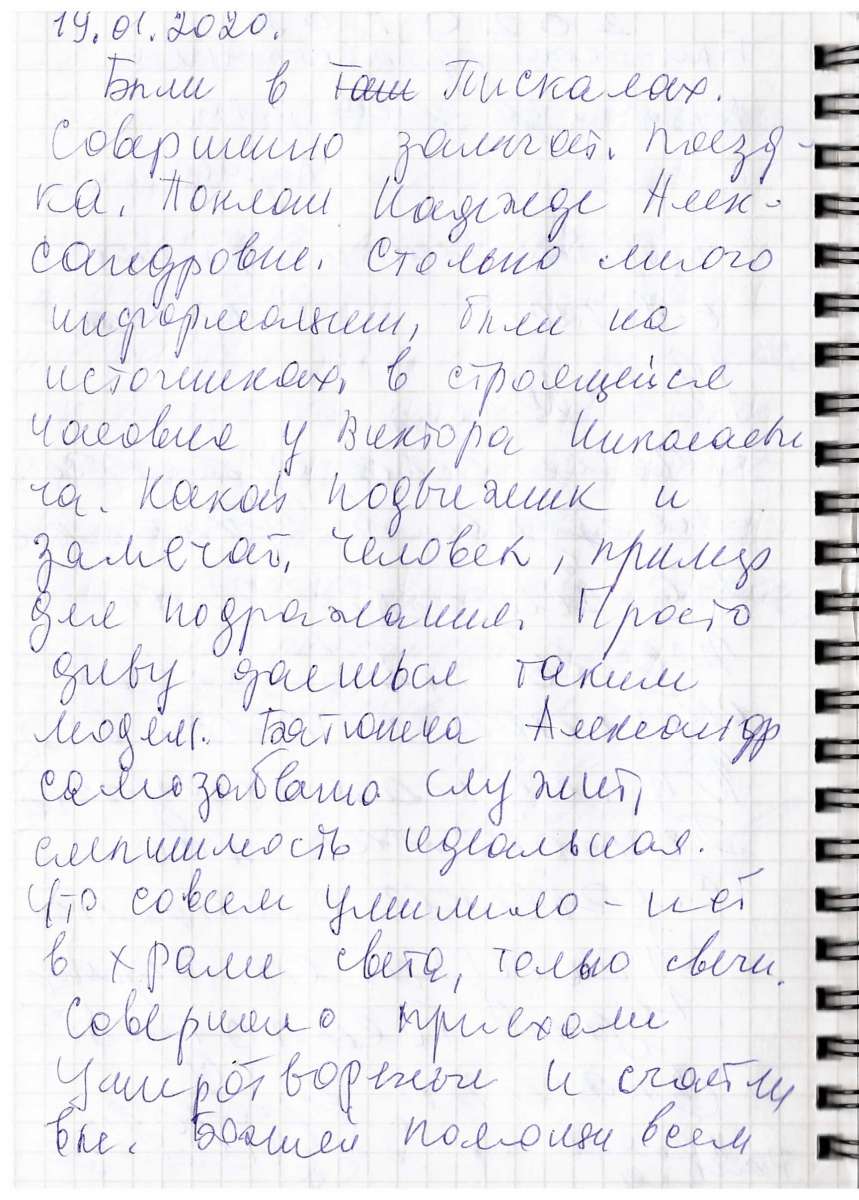 19.01.2020.
Были в Таш Пискалах.
Совершенно замечат. поезд-
ка. Поклон Надежде Алек-
сандровне. Столько много
информации, были на
источниках, в строящейся
часовне у Виктора Николаеви
ча. Какой подвижник и
замечат. человек, пример
для подражания. Просто
диву даешься таким
людям. Батюшка Александр
самозабвенно служит,
слышимость идеальная.
Что совсем умилило - нет
в храме света, только свечи.
Совершенно приехали
умиротвореные и счастли
вые. Божией помощи всем